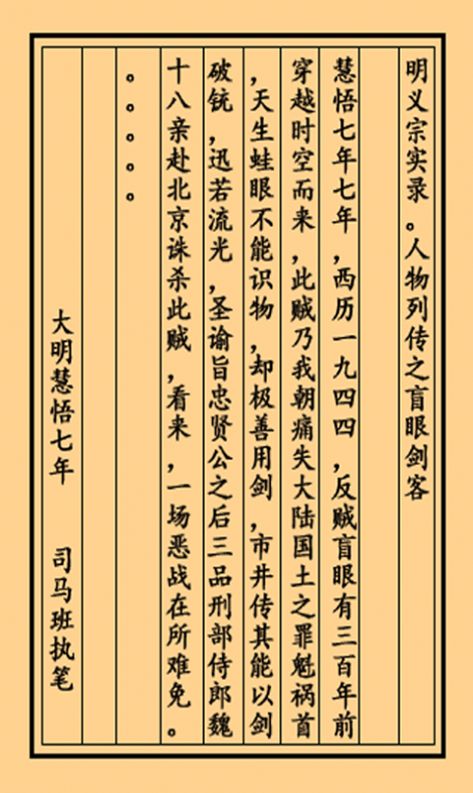 明义宗实录。人物列传之盲眼剑客
慧悟七年七年，西历一九四四，反贼盲眼有三百年前
穿越时空而来，此贼乃我朝痛失大陆国土之罪魁祸首
，天生蛙眼不能识物，却极善用剑，市井传其能以剑
破铳，迅若流光，圣谕旨忠贤公之后三品刑部侍郎魏
十八亲赴北京诛杀此贼，看来，一场恶战在所难免。
。。。。。
大明慧悟七年　　司马班执笔